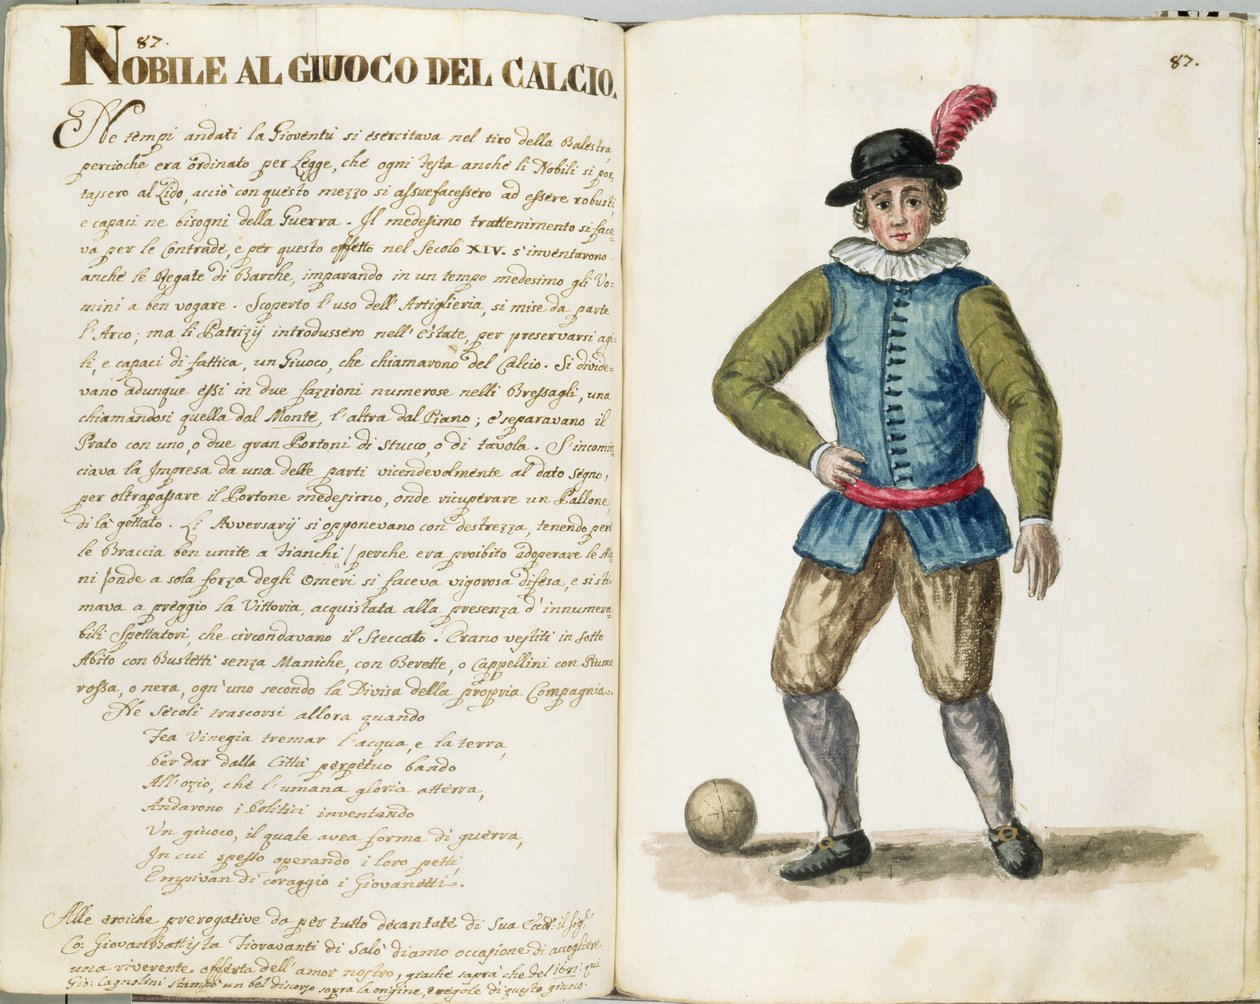 87.
NOBILE AL GIUOCO DEL CALCIO.
Ne tempi andati la Gioventù si esercitava nel tiro della Balestra
percioche era ordinato per Legge, che ogni testa anche li Nobili si por-
tassero al Lido, acciò con questo mezzo si assuefacessero ad essere robusti,
e capaci ne bisogni della Guerra. Il medesimo trattenimento si face-
va per le Contrade, e per questo effetto nel Secolo XIV. s'inventarono
anche le Regate di Barche, imparando in un tempo medesimo gli Uo-
mini a ben vogare. Scoperto l'uso dell'Artiglieria, si mise da parte
l'Arco; ma li Patrizij introdussero nell'Estate, per preservarsi agi-
li, e capaci di fattica, un Giuoco, che chiamarono del Calcio. Si divide-
vano adunque essi in due fazzioni numerose nelli Bressagli, una
chiamandosi quella dal Monte, l'altra dal Piano; e separavano il
Prato con uno, o due gran Portoni di Stucco, o di tavola. S'incomin-
ciava la Impresa da una delle parti vicendevolmente al dato Segno,
per oltrapassare il Portone medesimo, onde vicuperare un Pallone
di là gettato. Li Avversarij si opponevano con destrezza, tenendo però
le Braccia ben unite a Fianchi / perche era proibito adoperare le Ma-
ni / onde a sola forza degli Omeri si faceva vigorosa difesa, e si sti-
mava a preggio la Vittoria, acquistata alla presenza d'innumera-
bili Spettatori, che circondavano il Steccato. Erano vestiti in sotto
Abito con Bustetti senza Maniche, con Berette, o Cappellini con Piuma
rossa, o nera, ogn'uno secondo la Divisa della propria Compagnia.
Ne Secoli trascorsi allora quando
Fea Vinegia tremar l'acqua, e la terra,
Per dar dalla Città perpetuo bando
All'ozio, che l'umana gloria atterra,
Andarono i Politici inventando
Un giuoco, il quale avea forma di guerra,
In cui spesso operando i loro petti,
Empivan di coraggio i Giovanetti.
Alle eroiche prerogative da per tutto decantate di Sua Ecc: il Sig:
Co: Giovan Battista Fioravanti di Salò diamo occasione di accogliere
una riverente offerta dell'amor nostro, grache saprà che del qui
Gio: Cagnolini Stampò un bel discorso sopra la origine, e regole di questo giuoco
87.